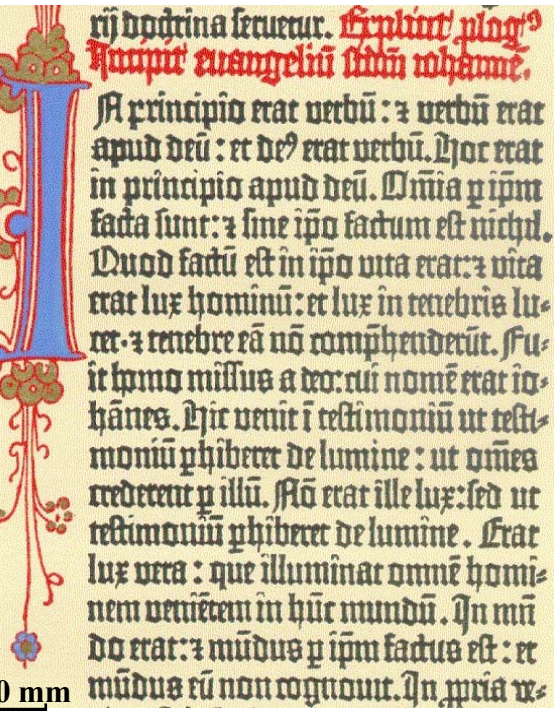 rij doctrina seruetur. Explicit plog⁹
Incipit euangeliū scdm iohannē.
IN principio erat verbū : ⁊ verbū erat
apud deū : et de⁹ erat verbū. Hoc erat
in principio apud deū. Om̄ia ꝑ ip̄m
facta sunt: ⁊ sine ip̄o factum est nichil.
Quod factū est in ip̄o vita erat: ⁊ vita
erat lux hominū: et lux in tenebris lu⸗
cet. ⁊ tenebre eā nō cōprehenderūt. Fu⸗
it homo missus a deo: cui nomē erat io⸗
hānes. Hic venit ī testimoniū ut testi⸗
moniū ꝑhiberet de lumine : ut om̄es
crederent ꝑ illū. Nō erat ille lux: sed ut
testimoniū ꝑhiberet de lumine. Erat
lux vera : que illuminat omnē homi⸗
nem veniētem in hūc mundū. In mū
do erat: ⁊ mūdus ꝑ ip̄m factus est : et
mūdus eū non cognouit. In ꝓpria ve⸗
0 mm